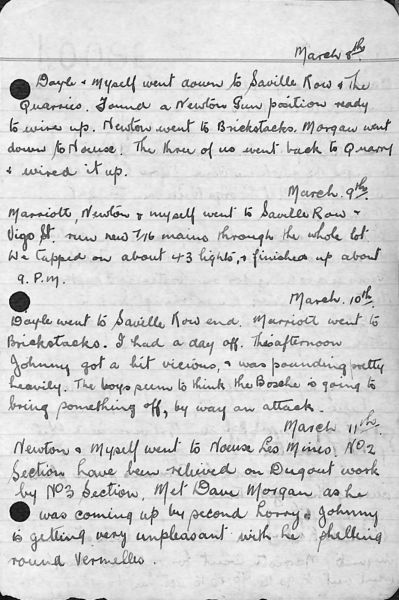 March 8th.
Doyle & Myself went down to Saville Row & The
Quarries. Found a Newton Gun position ready
to wire up. Newton went to Brickstacks. Morgan went
down to Noeuse. The three of us went back to Quarry
& wired it up.
March. 9th.
Marriott, Newton & myself went to Saville Row &
Vigo St. run new 7/16 mains through the whole lot.
We tapped on about 43 lights, & finished up about
9. P.M.
March. 10th.
Doyle went to Saville Row end. Marriott went to
Brickstacks. I had a day off. This afternoon
Johnny got a bit vicious, & was pounding pretty
heavily. The boys seem to think the Bosche is going to
bring something off, by way an attack.
March 11th.
Newton & Myself went to Noeuse Les Mines. No 2
Section have been relieved on Dugout work
by No 3 Section. Met Dave Morgan as he
was coming up by second Lorry & Johnny
is getting very unpleasant with he shelling
round Vermelles.